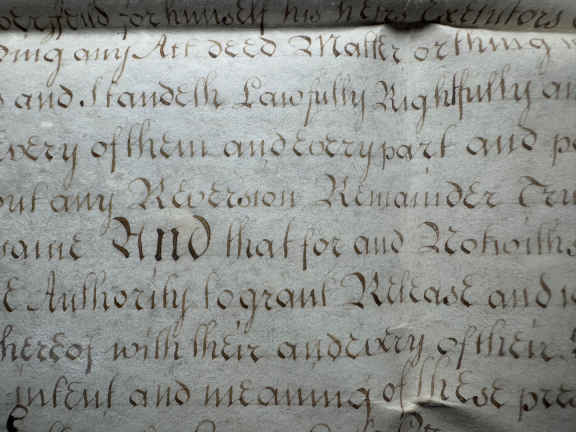 for himself his heirs Executors
doing any Act deed Matter or thing
and Standeth Lawfully Rightfully
every of them and every part and
out any Reversion Remainder
same And that for and
Authority to grant Release and
thereof with their and every of their
intent and meaning of these